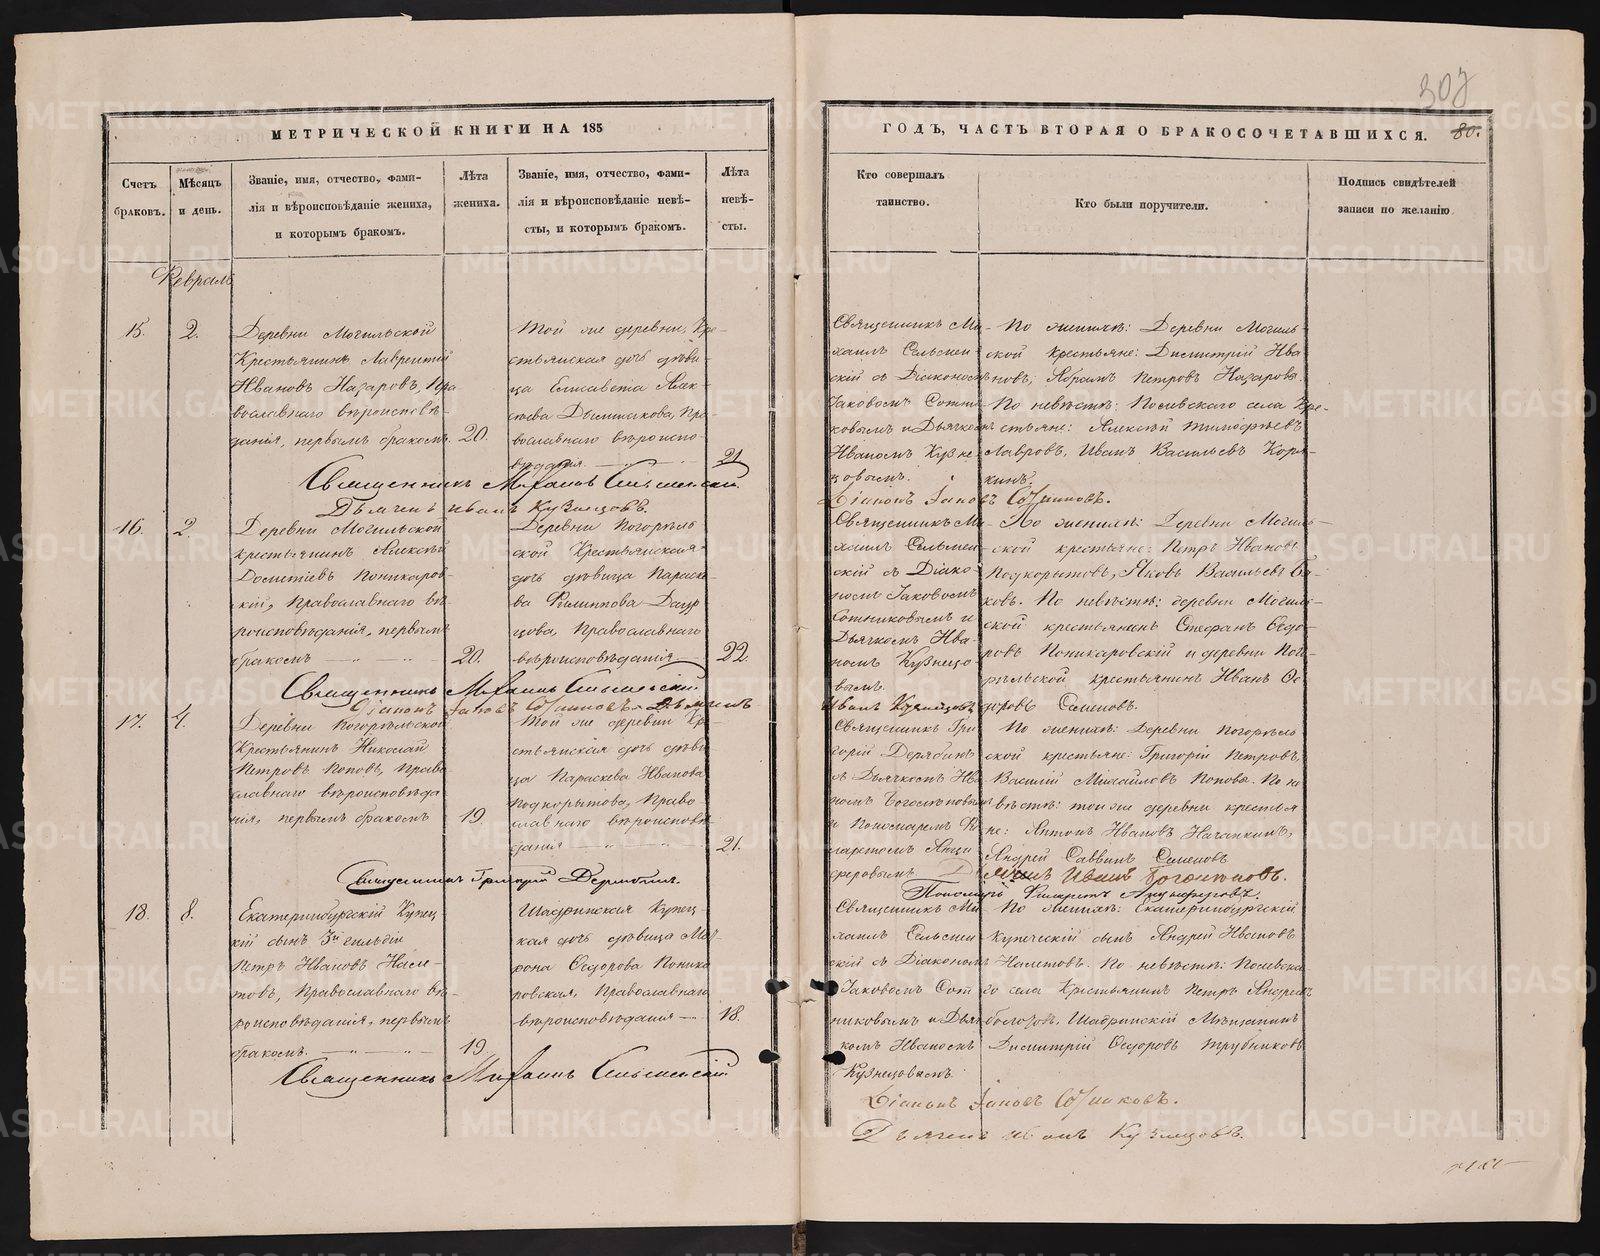 307
МЕТРИЧЕСКОЙ КНИГИ НА 185
ГОДЪ, ЧАСТЬ ВТОРАЯ О БРАКОСОЧЕТАВШИХСЯ.
80.
Счетъ браковъ.
Мѣсяцъ и день.
Званіе, имя, отчество, фами-
лія и вѣроисповѣданіе жениха,
и которымъ бракомъ.
Лѣта жениха.
Званіе, имя, отчество, фами-
лія и вѣроисповѣданіе невѣ-
сты, и которымъ бракомъ.
Лѣта невѣ-
сты.
Кто совершалъ
таинство.
Кто были поручители.
Подпись свидѣтелей
записи по желанію
Февраль
15.
2.
Деревни Могильской
Крестьянинъ Лаврентій
Ивановъ Назаровъ, Пра
вославнаго вѣроисповѣ-
данія, первымъ бракомъ.
20.
Той же деревни, Кре-
стьянская дочь дѣви-
ца Елисавета Алек-
сѣева, Пра-
вославнаго вѣроиспо-
вѣданія
21
Священникъ Ми-
хаилъ Сельмен-
скій съ Діакономъ
Іаковомъ Сотни-
ковымъ и Дьячкомъ
Иваномъ Кузне-
цовымъ.
По женихѣ: Деревни Могиль-
ской крестьяне: Димитрій Ива
новъ, Абрамъ Петровъ Назаровы.
По невѣстѣ: села Кре-
стьяне: Алексѣй Тимофѣевъ
Лавровъ, Иванъ Васильевъ Коря-
кинъ.
Священникъ Михаилъ Сельменскій
Діаконъ Іаковъ Сотниковъ.
Дьячекъ Иванъ Кузнецовъ.
16.
2.
Деревни Могильской
крестьянинъ Алексѣй
Дометіевъ Поникаров-
скій, Православнаго вѣ-
роисповѣданія, первымъ
бракомъ
20.
Деревни Погорѣль
ской Крестьянская
дочь дѣвица Параске-
ва Филиппова
Православнаго
вѣроисповѣданія
22.
Священникъ Ми-
хаилъ Сельмен-
скій съ Діако-
номъ Іаковомъ
Сотниковымъ и
Дьячкомъ Ива-
номъ Кузнецо-
вымъ.
По женихѣ: Деревни Могиль-
ской крестьяне: Петръ Ивановъ
Подкорытовъ, Яковъ Васильевъ Бы-
ковъ. По невѣстѣ: деревни Могиль-
ской крестьянинъ Стефанъ Ѳедо-
ровъ Поникаровскій и деревни Пого-
рѣльской крестьянинъ Иванъ Ѳе-
доровъ Семеновъ.
Священникъ Михаилъ Сельменскій
Діаконъ Іаковъ Сотниковъ. Дьячекъ
Иванъ Кузнецовъ
17.
4.
Деревни Погорѣльской
Крестьянинъ Николай
Петровъ Поповъ, Право
славнаго вѣроисповѣда
нія, первымъ бракомъ
19.
Той же деревни Кре-
стьянская дочь дѣви
ца Параскева Иванова
Подкорытова, Право-
славнаго вѣроисповѣ-
данія
21.
Священникъ Гри
горій Дерябинъ
съ Дьячкомъ Ива
номъ Богомоловымъ
и Пономаремъ Фи
ларетомъ Анци-
феровымъ
По женихѣ: Деревни Погорѣль
ской крестьяне: Григорій Петровъ,
Василій Михайловъ Поповы. По не
вѣстѣ: той же деревни крестья
не: Антонъ Ивановъ
Андрей Саввинъ Семеновъ
Священникъ Григорій Дерябинъ.
Дьячекъ Иванъ Богомоловъ.
Пономарь Филаретъ Анциферовъ.
18.
8.
Екатеринбургскій Купец
кій сынъ 3й гильдіи
Петръ Ивановъ Насле-
товъ, Православнаго вѣ-
роисповѣданія, первымъ
бракомъ.
19.
Шадринская Купец-
кая дочь дѣвица Мат-
рона Ѳедорова Поника
ровская, Православнаго
вѣроисповѣданія
18.
Священникъ Ми-
хаилъ Сельмен-
скій съ Діакономъ
Іаковомъ Сот
никовымъ и Дьяч
комъ Иваномъ
Кузнецовымъ.
По женихѣ: Екатеринбургскій
Купеческій сынъ Андрей Ивановъ
По невѣстѣ:
го села Крестьянинъ Петръ Андреевъ
Шадринскій Мѣщанинъ
Димитрій Ѳедоровъ Трубниковъ
Священникъ Михаилъ Сельменскій
Діаконъ Іаковъ Сотниковъ.
Дьячекъ Иванъ Кузнецовъ.
METRIKI.GASO-URAL.RU